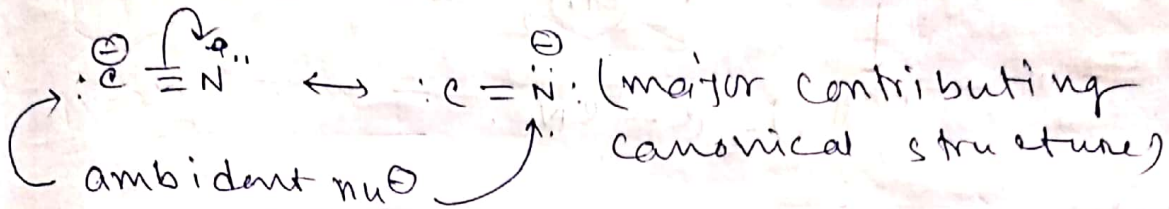 :C⊖ ≡ N: ↔ :C = N̈:⊖ (major contributing
canonical structure)
ambident nu⊖